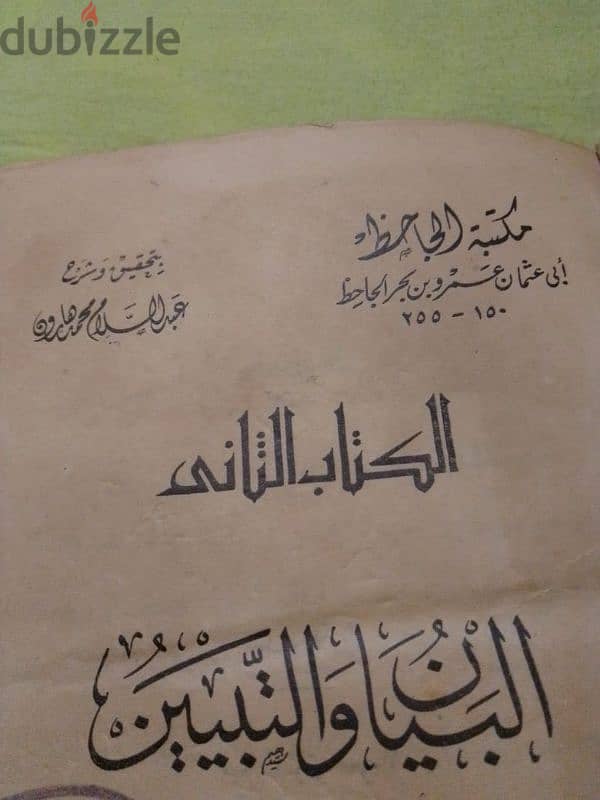 dubizzle
مكتبة الجاحظ
أبى عثمان عمرو بن بحر الجاحظ
١٥٠ - ٢٥٥
بتحقيق وشرح
عبد السلام محمد هارون
الكتاب الثانى
البيان والتبيين